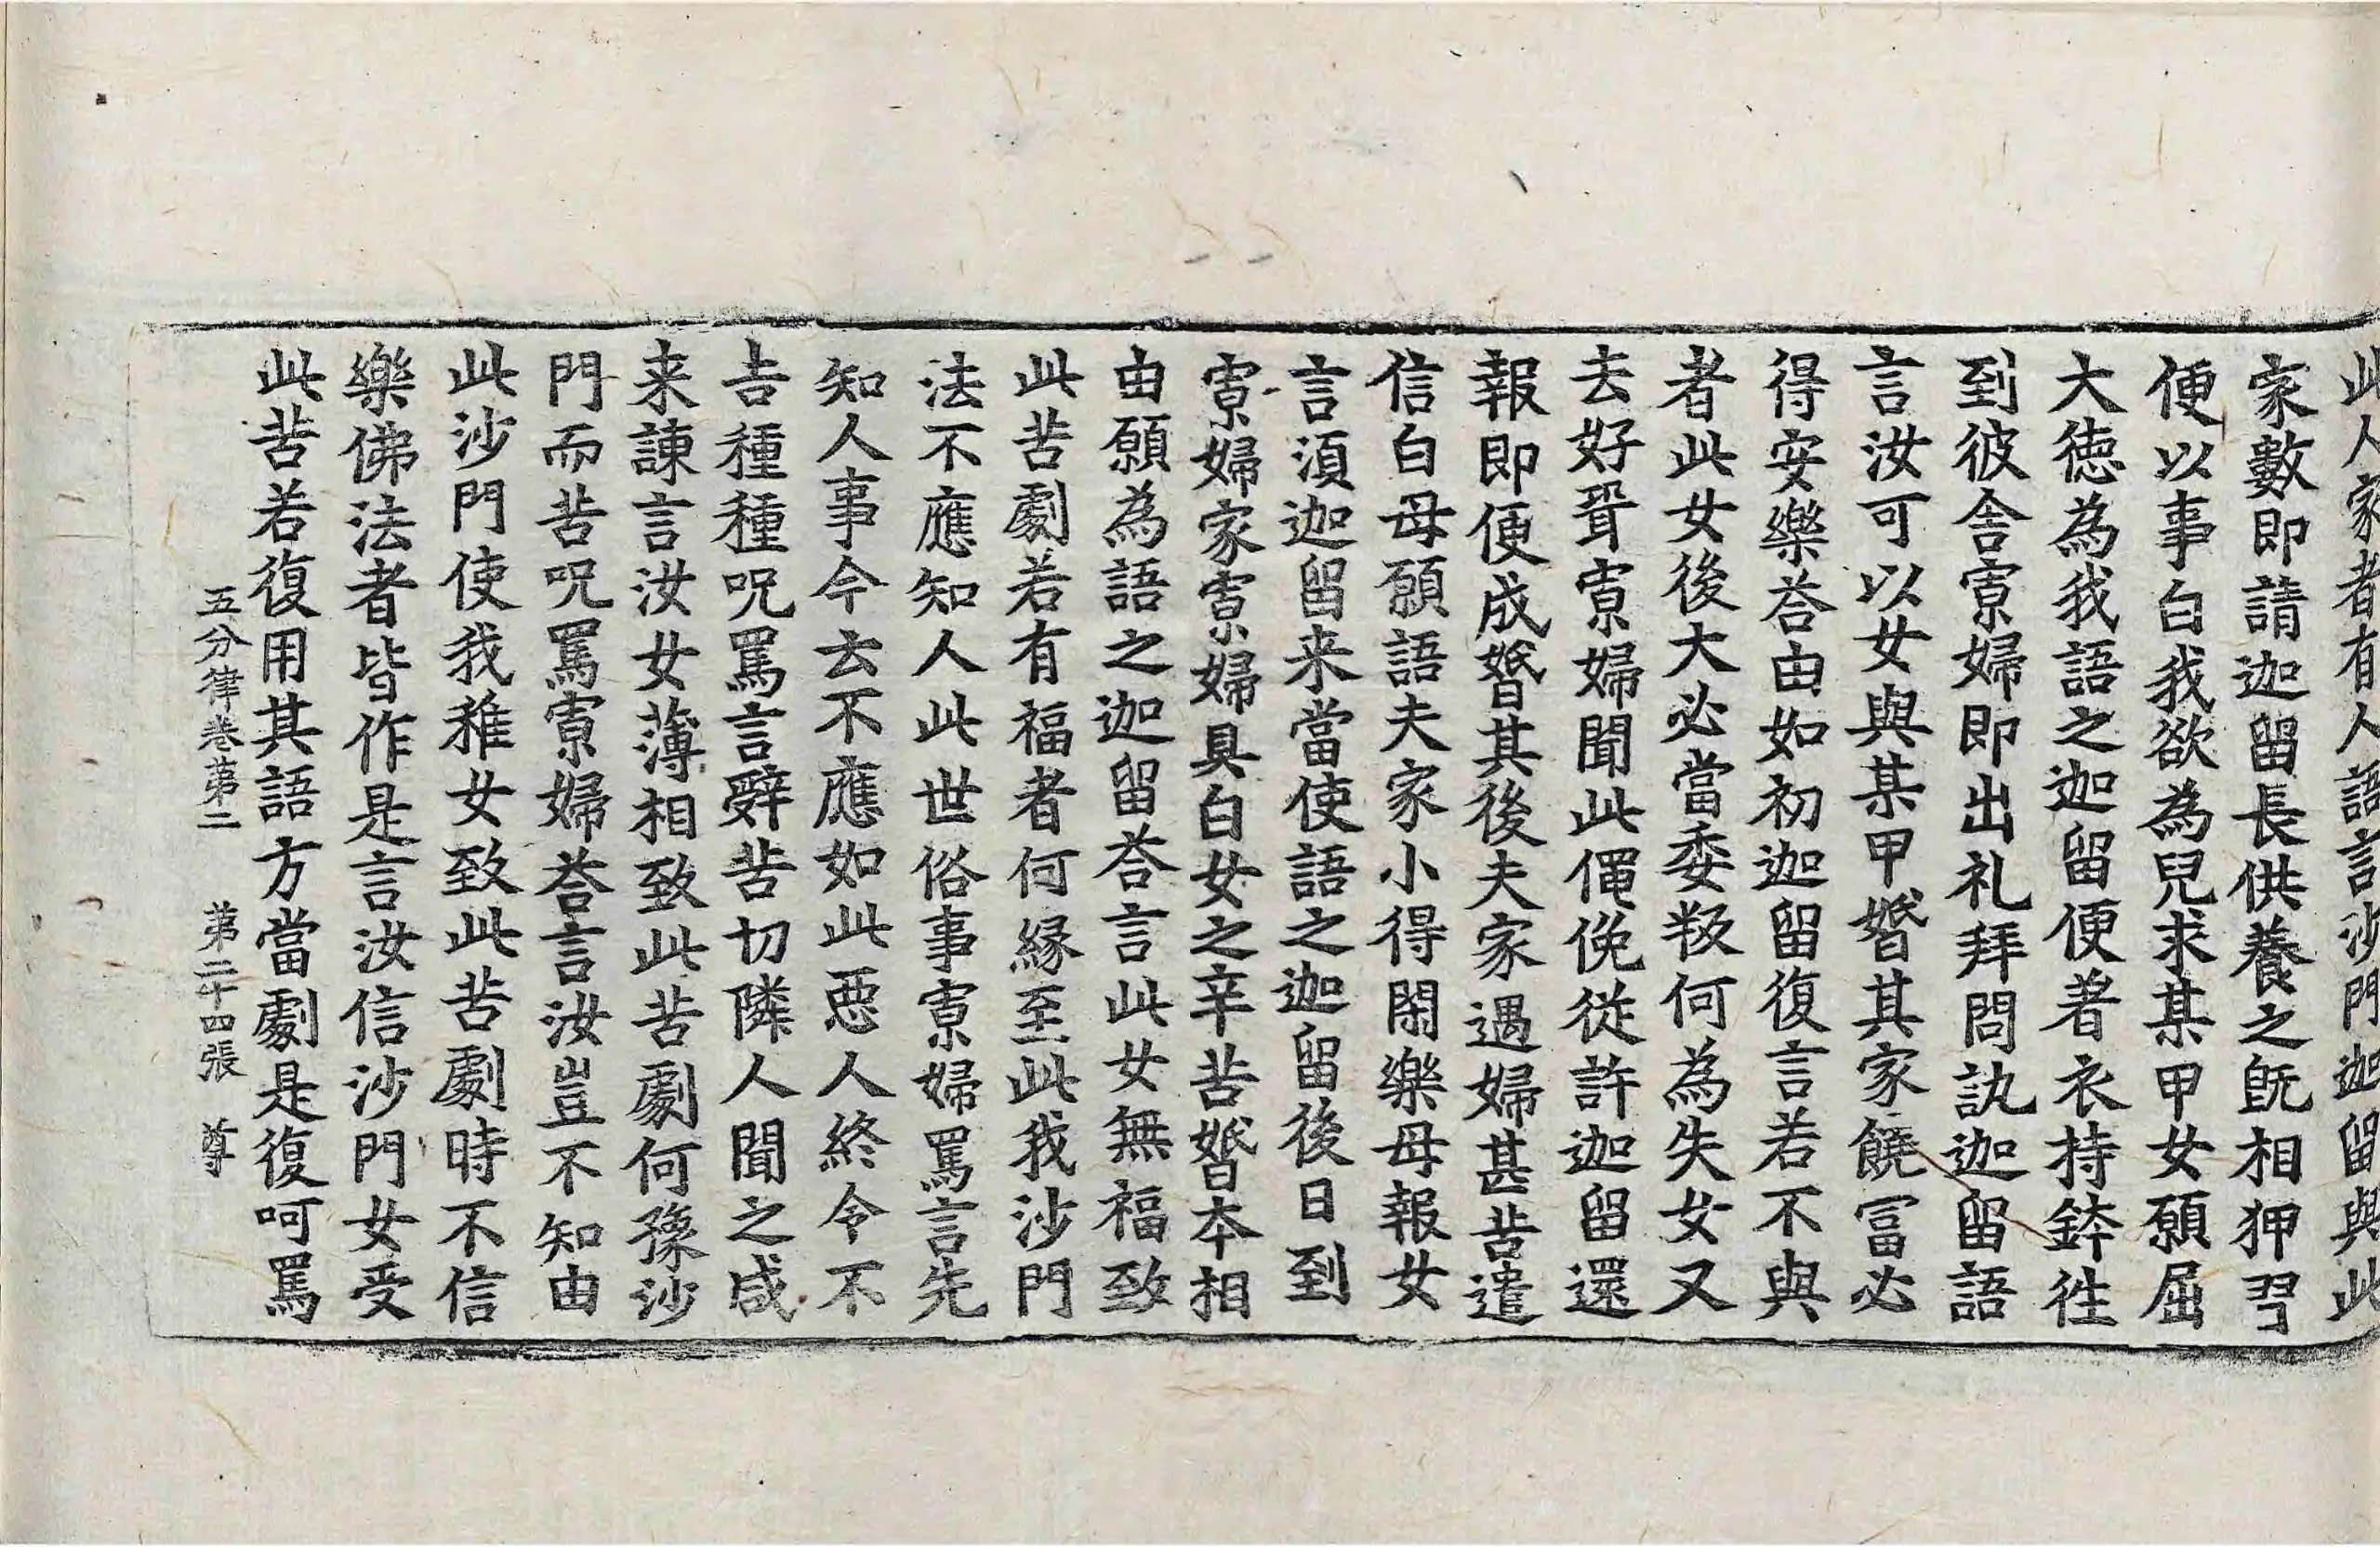 此人家者有人語言沙門迦留與此
家數即請迦留長供養之旣相狎習
便以事白我欲為兒求某甲女願屈
大徳為我語之迦留便著衣持鉢徃
到彼舍寡婦即出礼拜問訊迦留語
言汝可以女與某甲婚其家饒冨必
得安樂荅由如初迦留復言若不與
者此女後大必當委叛何為失女又
去好聟寡婦聞此僶俛従許迦留還
報即便成婚其後夫家遇婦甚苦遣
信白母願語夫家小得閑樂母報女
言湏迦留来當使語之迦留後日到
寡婦家寡婦具白女之辛苦婚本相
由願為語之迦留荅言此女無福致
此苦劇若有福者何縁至此我沙門
法不應知人此世俗事寡婦罵言先
知人事今去不應如此惡人終令不
吉種種呪罵言辭苦切隣人聞之咸
来諫言汝女薄相致此苦劇何豫沙
門而苦呪罵寡婦荅言汝豈不知由
此沙門使我稚女致此苦劇時不信
樂佛法者皆作是言汝信沙門女受
此苦若復用其語方當劇是復呵罵
五分律卷苐二 苐二十四張 尊